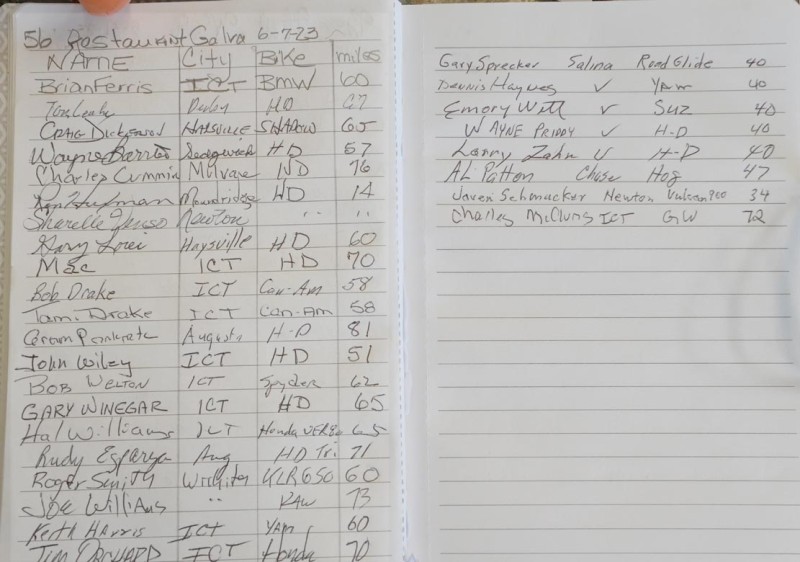 56 Restaurant Galva 6-7-23
NAME City Bike miles
Brian Ferris ICT BMW 60
Tom Leahy Derby HD 67
Craig Dickerson HAYSVILLE SHADOW 65
Wayne Barnes Sedgwick HD 57
Charles Cummin Mulvane HD 76
Ken Hufman Moundridge HD 14
Sharelle Newton " "
Gary Haysville HD 60
Mac ICT HD 70
Bob Drake ICT Can-Am 58
Tami Drake ICT Can-Am 58
Augusta H-D 81
John Wiley ICT HD 51
BOB WELTON ICT Spyder 62
GARY WINEGAR ICT HD 65
Hal Williams ICT Honda 65
Rudy Esparza Aug HD Tri 71
Roger Smith Wichita KLR650 60
Joe Williams " KAW 73
Keith HArris ICT YAM 60
TIM ORCHARD ICT Honda 70
Gary Sprecker Salina Road Glide 40
Dennis Haynes ✓ YAM 40
Emory Will ✓ Suz 40
WAYNE PRIDDY ✓ H-D 40
Larry Zahn ✓ H-D 40
Al Patton Chase Hog 47
Javen Schmucker Newton Vulcan 900 34
Charles McClung ICT GW 72